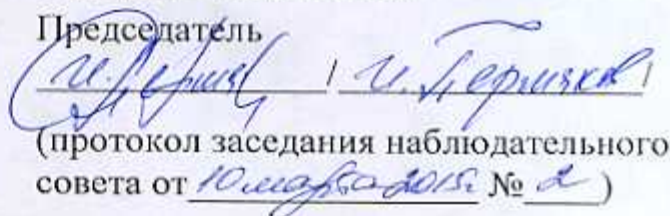 Председатель
/ И. Пермяков /
(протокол заседания наблюдательного
совета от 10 марта 2015г. № 2 )